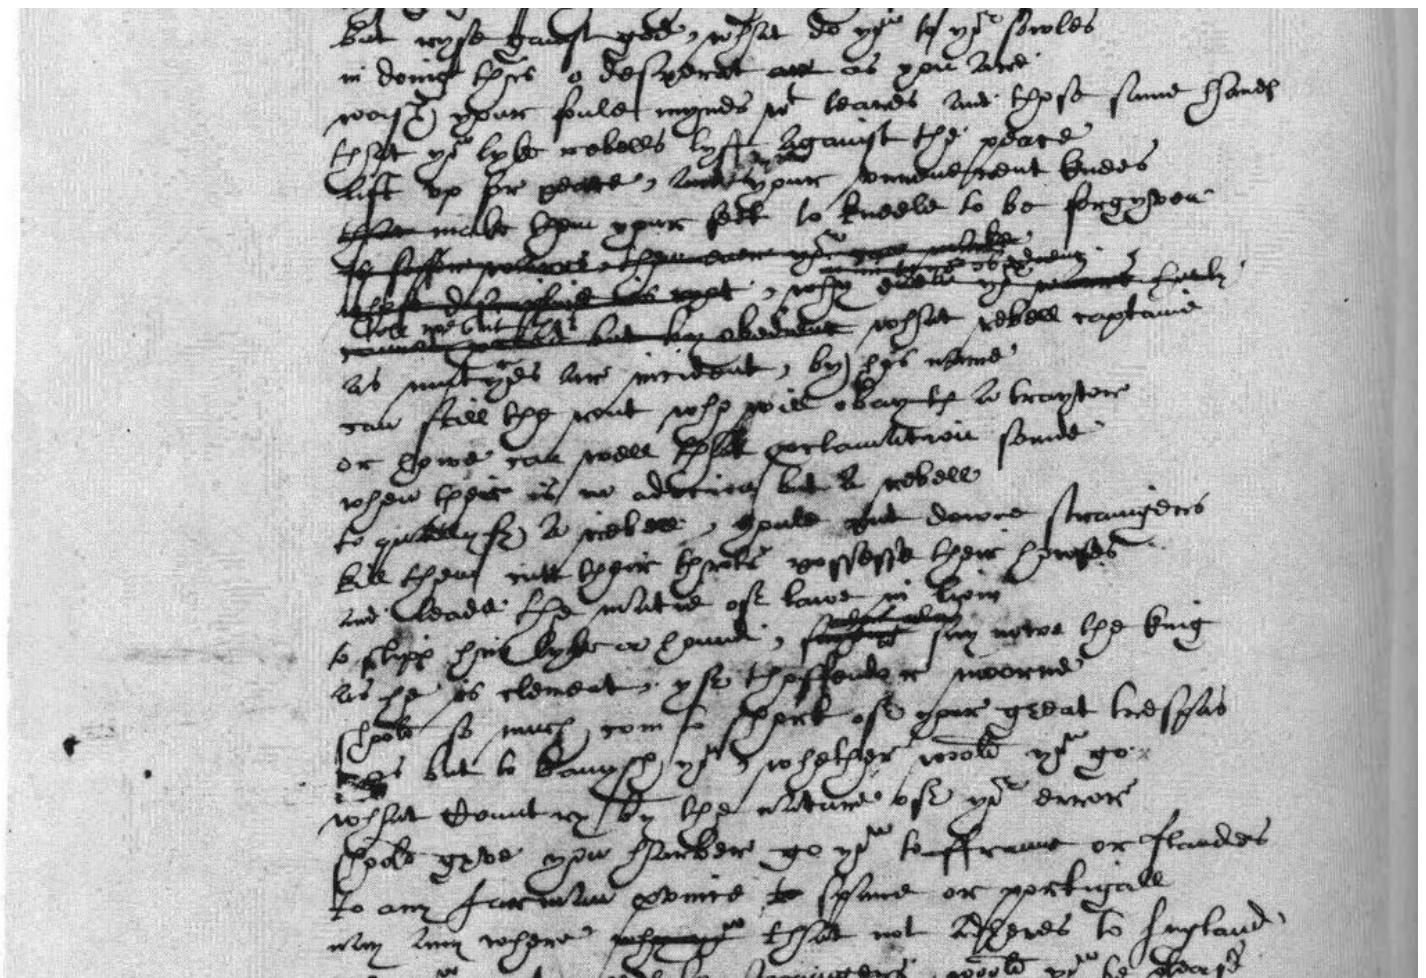 but ryse gainst god, what do yo to yor sowles
in doing this o desperat as you are
wash your foule mynds wt teares and those same handes
that yo lyke rebells lyft against the peace
lift vp for peace, and your vnreuerent knees
that make them your feet to kneele to be forgyven
is safer warrs, then euer yo can make
in in to yor obedienc
whose discipline is ryot, why euen yor warrs hurly
tell me but this
cannot proceed but by obedienc what rebell captaine
as mutynes ar incident, by his name
can still the rout who will obay th a traytor
or howe can well that proclamation sounde
when ther is no adicion but a rebell
to quallyfy a rebell, youle put downe straingers
kill them cutt their throts possesse their howses
and leade the matie of lawe in liom
alas alas
to slipp him lyke a hound, sayeng say nowe the king
as he is clement, yf thoffendor moorne
shoold so much com to short of your great trespas
as but to banysh yo, whether woold yo go
what Country by the nature of yor error
shoold gyve you harber go yo to ffraunc or flanders
to any Iarman province to spane or portigall
nay any where why yo that not adheres to Ingland
straingers, woold yo be pleasd